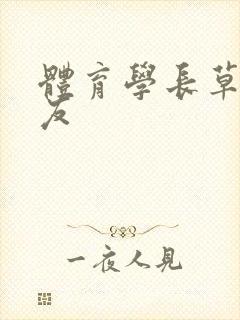 體育學長草
友
一夜人見